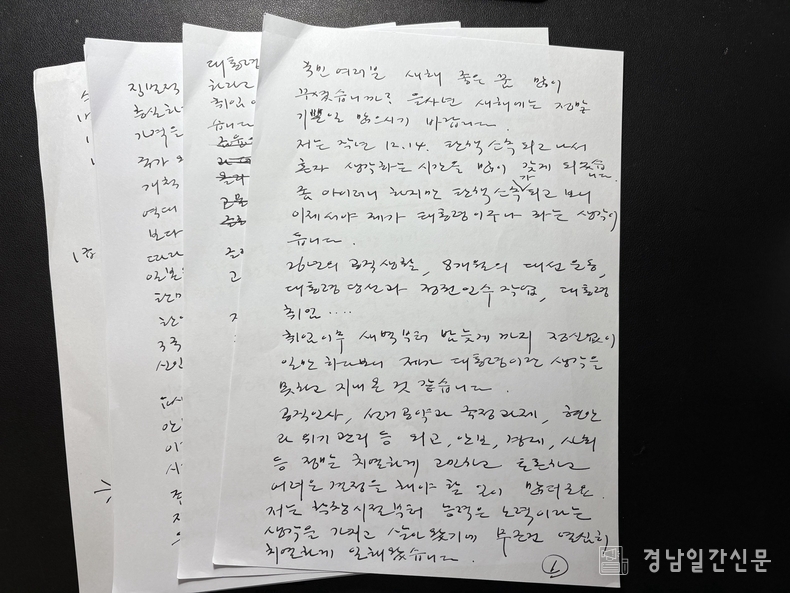 국민 여러분 새해 좋은 꿈 많이
꾸셨습니까? 을사년 새해에는 정말
기쁜일 많으시기 바랍니다.
저는 작년 12.14. 탄핵 소추 되고 나서
혼자 생각하는 시간을 많이 갖게 되었습니다.
좀 아이러니 하지만 탄핵 소추가 되고 보니
이제서야 제가 대통령이구나 하는 생각이
듭니다.
26년의 공직생활, 8개월의 대선 운동,
대통령 당선과 정권 인수 작업, 대통령
취임....
취임이후 새벽부터 밤늦게 까지 정신없이
일만 하다보니 제가 대통령이란 생각을
못하고 지내온 것 같습니다.
공직인사, 선거공약과 국정과제, 현안
과 위기 관리 등 외교, 안보, 경제, 사회
등 정말 치열하게 고민하고 토론하고
어려운 결정을 해야 할 일이 많더군요.
저는 학창시절부터 능력은 노력이라는
생각을 가지고 살아왔기에 무조건 열심히
치열하게 일해왔습니다.
1
대통령
하라고
취임
습니다
고
징벌적
충실하
가격을
국가
개척
역대
보다
따라
일본
한미
3국
경남일간신문